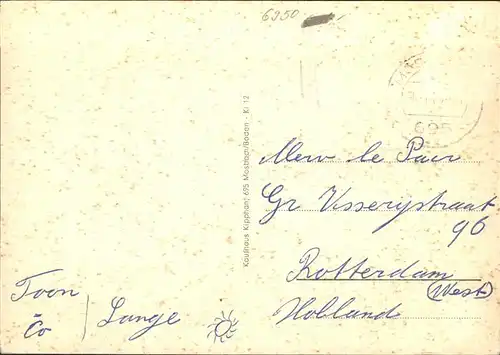 6950
Kaufhaus Kipphan, 695 Mosbach/Baden - Ki 12
Mevr le Pair
Gr Visserijstraat
96
Rotterdam
(West)
Holland
Toon
Co
Lange